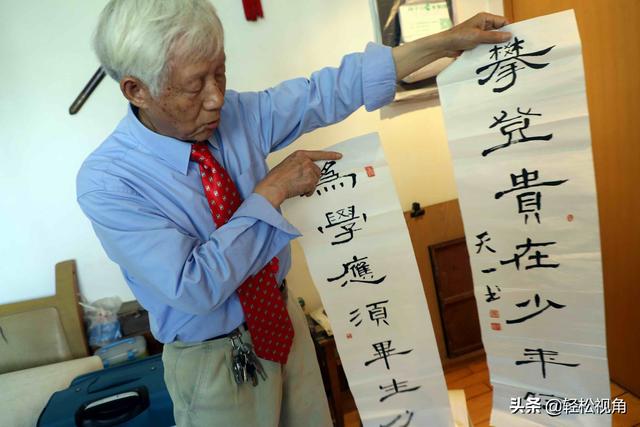 為學應須畢生力
攀登貴在少年時
天一书
头条 @轻松视角